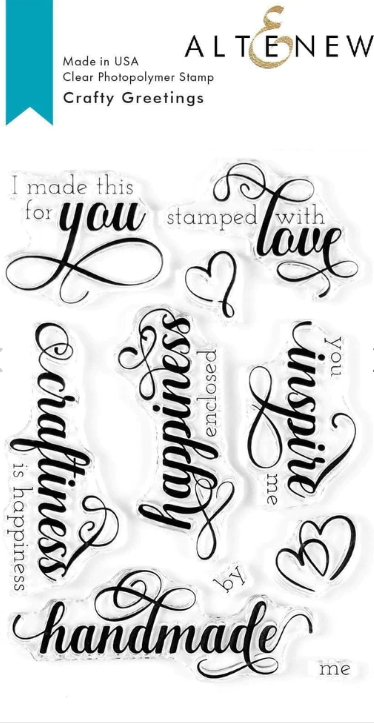 ALTENEW
Made in USA
Clear Photopolymer Stamp
Crafty Greetings
I made this
for you
stamped with
love
craftiness
is happiness
happiness
enclosed
You
inspire
me
by
handmade
me